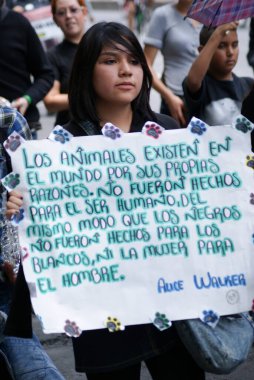 LOS ANIMALES EXISTEN EN
EL MUNDO POR SUS PROPIAS
RAZONES. NO FUERON HECHOS
PARA EL SER HUMANO, DEL
MISMO MODO QUE LOS NEGROS
NO FUERON HECHOS PARA LOS
BLANCOS, NI LA MUJER PARA
EL HOMBRE.
ALICE WALKER